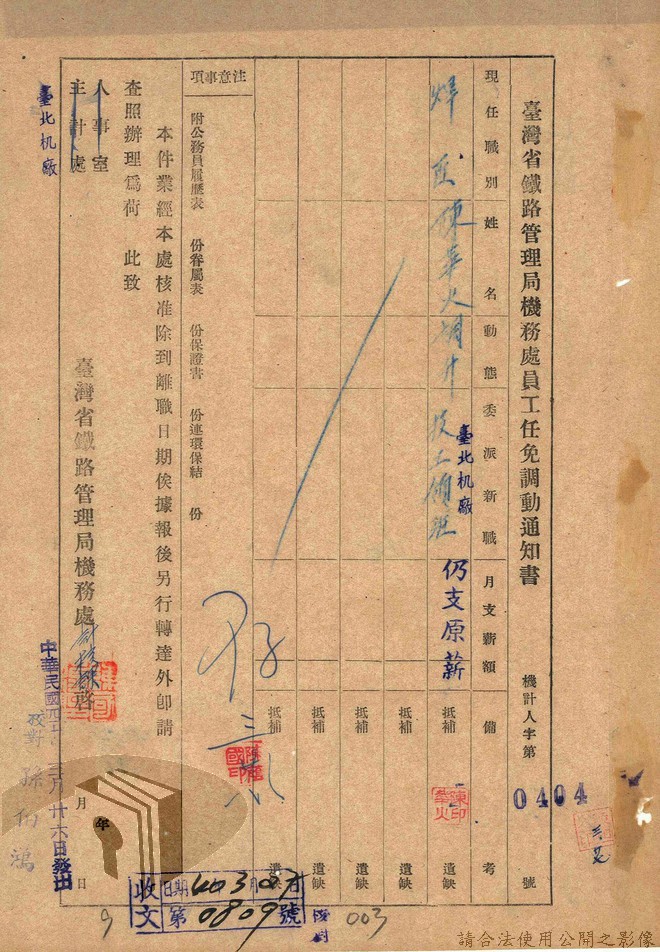 臺灣省鐵路管理局機務處員工任免調動通知書
機計人字第 0404 號
現任職別 姓名 動態 委派新職 月支薪額 備考
陳華火 調升 技工領班
臺北机廠
仍支原薪
抵補 遺缺
陳華火印
抵補 遺缺
抵補 遺缺
抵補 遺缺
抵補 遺缺
注意事項
附公務員履歷表 份眷屬表 份保證書 份連環保結 份
本件業經本處核准除到離職日期俟據報後另行轉達外卽請
查照辦理爲荷 此致
人事室
主計處
臺北机廠
臺灣省鐵路管理局機務處 啓
年 月 日
中華民國四十 三月廿六日發出
校對 孫
存
收文 日期 40 3 27
第 0809 號
003
9
請合法使用公開之影像